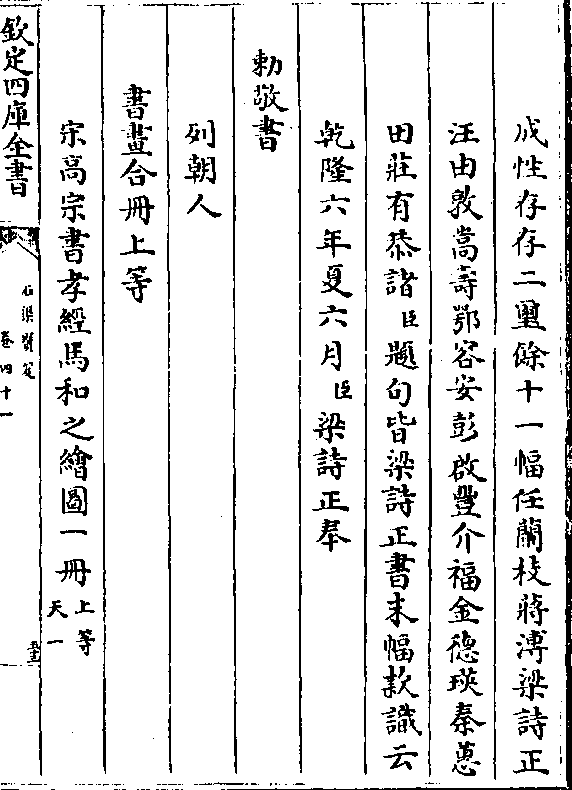 成性存存二璽餘十一幅任蘭枝蔣溥梁詩正
汪由敦嵩壽鄂容安彭啟豐介福金德瑛秦蕙
田莊有恭諸臣題句皆梁詩正書末幅款識云
乾隆六年夏六月臣梁詩正奉
勅敬書
列朝人
書畫合冊上等
宋高宗書孝經馬和之繪圖一冊上等
天一
欽定四庫全書
石渠寳笈
卷四十一